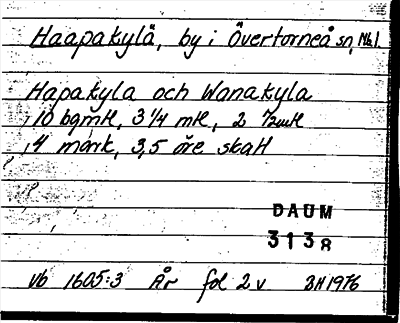 Haapakylä, by i Övertorneå sn, Nb.l.
Hapakyla och Wanakyla
10 bgmtl, 3 1/4 mtl, 2 1/2 mtl
4 mark, 3,5 öre skatt
DAUM
3138
Vb 1605:3 År fol 2 v BH 1976